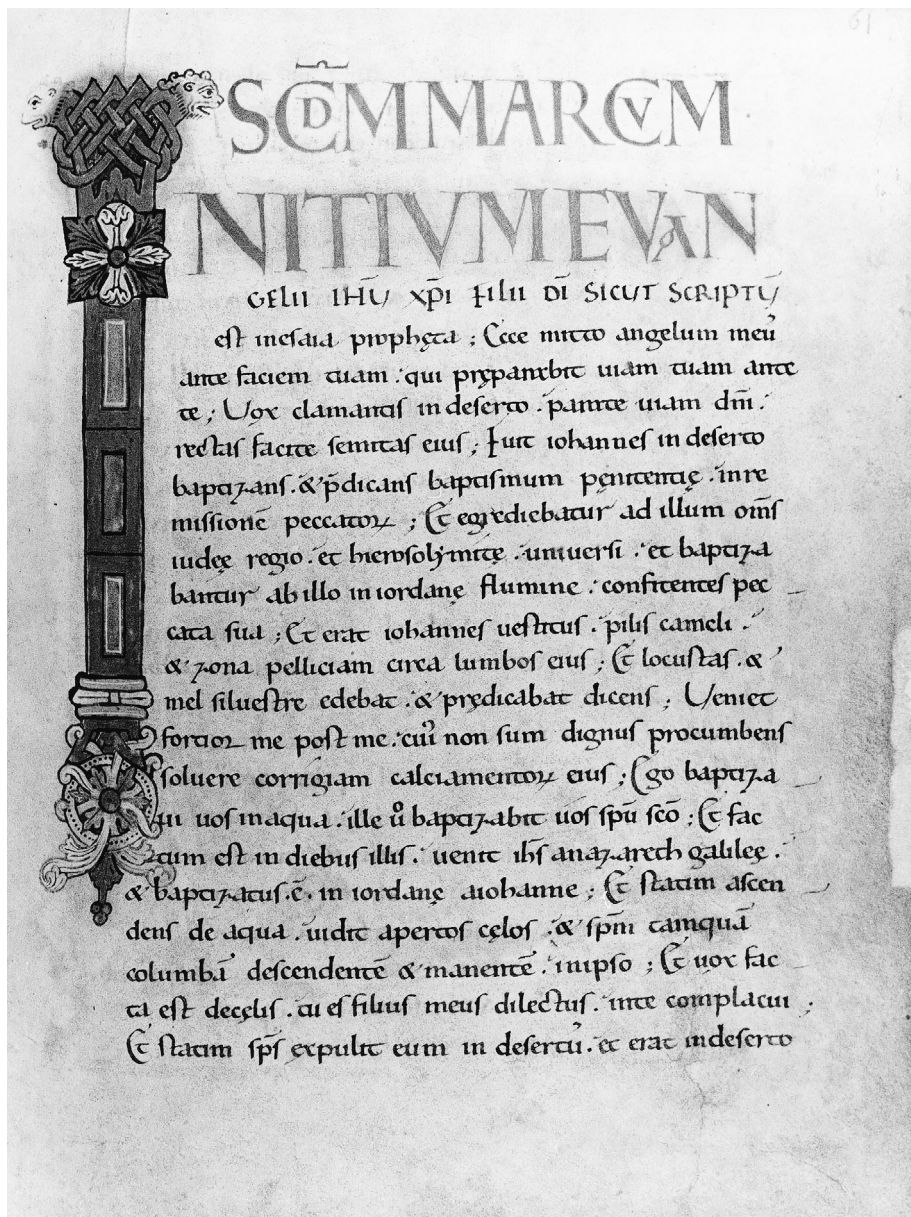 61
SCDM MARCVM
INITIVM EVAN
GELII IHŪ XP̄I FILII DĪ SICUT SCRIPTŪ
est in esaia prophęta ; Ecce mitto angelum meū
ante faciem tuam . qui pręparabit uiam tuam ante
te ; Uox clamantis in deserto . parate uiam dn̄i .
rectas facite semitas eius ; Fuit iohannes in deserto
baptizans . & p̄dicans baptismum pęnitentię . in re
missionē peccatoꝝ ; Et egrediebatur ad illum om̄s
iudęę regio . et hierosolymitę . uniuersi . et baptiza
bantur ab illo in iordanę flumine . confitentes pec
cata sua ; Et erat iohannes uestitus . pilis cameli .
& zona pelliciam circa lumbos eius ; Et locustas . &
mel siluestre edebat . & prędicabat dicens ; Ueniet
fortior me post me . cui non sum dignus procumbens
soluere corrigiam calciamentoꝝ eius ; Ego baptiza
ui uos in aqua . ille u͛o baptizabit uos sp̄u sc̄o ; Et fac
tum est in diebus illis . uenit ih̄s a nazareth galileę .
& baptizatus .ē. in iordanę a iohanne ; Et statim ascen
dens de aqua . uidit apertos cęlos . & sp̄m tamquā
columbā descendentē & manentē . in ipso ; Et uox fac
ta est de cęlis . tu es filius meus dilectus . in te complacui ;
Et statim sp̄s expulit eum in desertū . et erat in deserto